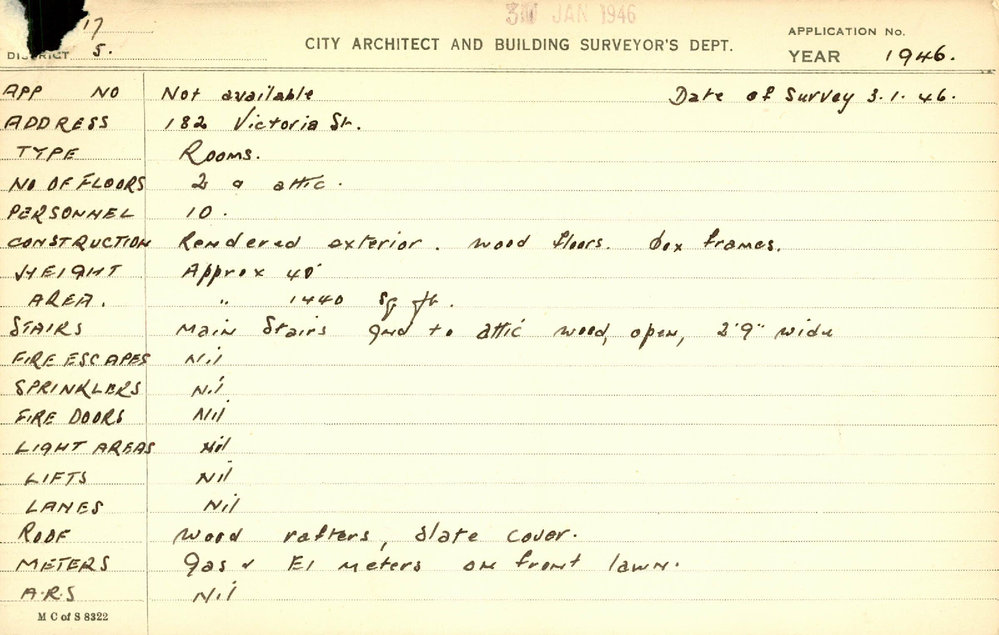 31 JAN 1946
17
DISTRICT 5.
CITY ARCHITECT AND BUILDING SURVEYOR'S DEPT.
APPLICATION No.
YEAR 1946.
APP NO Not available Date of Survey 3.1.46.
ADDRESS 182 Victoria St.
TYPE Rooms.
NO OF FLOORS 2 & attic.
PERSONNEL 10.
CONSTRUCTION Rendered exterior. wood floors. box frames.
HEIGHT Approx 40'
AREA. " 1440 sq ft.
STAIRS Main Stairs gnd to attic wood, open, 2'9" wide
FIRE ESCAPES Nil
SPRINKLERS Nil
FIRE DOORS Nil
LIGHT AREAS Nil
LIFTS Nil
LANES Nil
ROOF Wood rafters, slate cover.
METERS Gas & El meters on front lawn.
A.R.S Nil
M C of S 8322